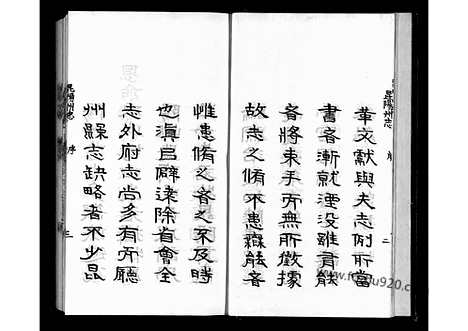 昆陽州志
序
二
華文獻與夫志例所當
書者漸就湮没雖有能
者將束手而無所徵據
故志之脩不患無能者
惟患脩之者之不及時
也滇省僻遠除省會全
志外府志尚多有而廳
州縣志缺略者不少昆
昆陽州志
序
三